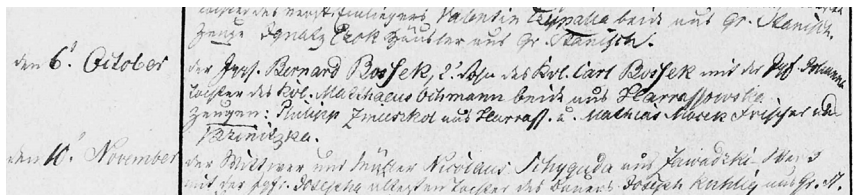 Tochter des verst. Einliegers Valentin Czupalla beide aus Gr. Stanisch.
Zeuge Ignatz Czok Häusler aus Gr. Stanisch.
den 6t October
der Jggs. Bernard Bossek, 2t Sohn des Kol. Carl Bossek mit der Jgf Johanna
Tochter des Kol. Mathaeus Ochmann beide aus Harrassowska.
Zeugen: Philipp Zmuskol aus Harrass. u. Mathias Mosek Frischer aus
Krzinitzka.
den 10t November
der Wittwer und Müller Nicolaus Schyguda aus Zawadzki
mit der Jgfr. Josepha ältesten Tochter des Bauers Joseph Kuhlig aus Gr. St.